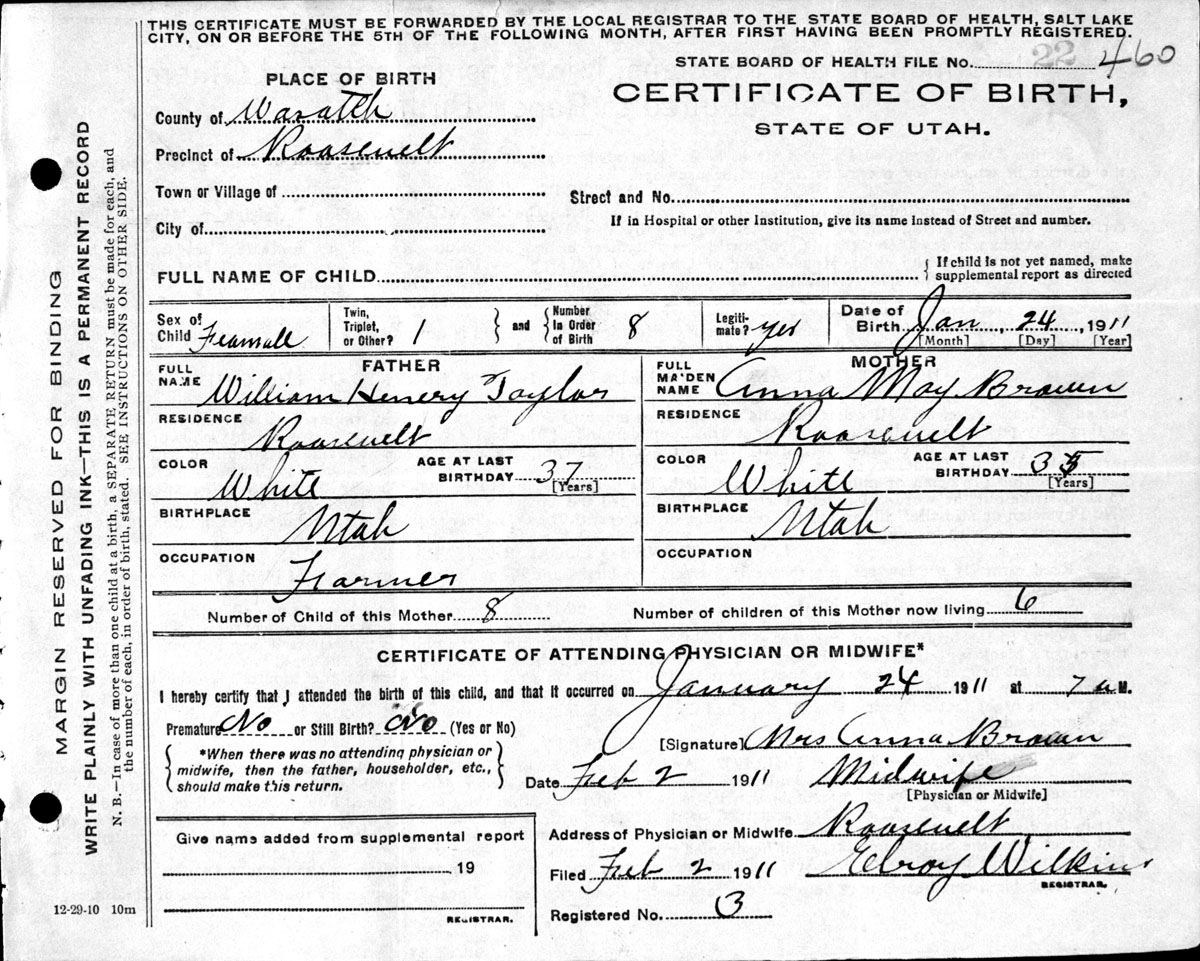 THIS CERTIFICATE MUST BE FORWARDED BY THE LOCAL REGISTRAR TO THE STATE BOARD OF HEALTH, SALT LAKE
CITY, ON OR BEFORE THE 5TH OF THE FOLLOWING MONTH, AFTER FIRST HAVING BEEN PROMPTLY REGISTERED.
STATE BOARD OF HEALTH FILE No. 22 460
PLACE OF BIRTH
CERTIFICATE OF BIRTH,
STATE OF UTAH.
County of Wasatch
Precinct of Roosevelt
Town or Village of
Street and No.
City of
If in Hospital or other Institution, give its name instead of Street and number.
FULL NAME OF CHILD
If child is not yet named, make
supplemental report as directed
Sex of Child Feamale
Twin, Triplet, or Other? 1
and
Number in Order of Birth 8
Legitimate? yes
Date of Birth Jan 24, 1911
[Month] [Day] [Year]
FATHER
MOTHER
FULL NAME William Henery Taylor
FULL MAIDEN NAME Anna May Brown
RESIDENCE Roosevelt
RESIDENCE Roosevelt
COLOR White
AGE AT LAST BIRTHDAY 37 [Years]
COLOR White
AGE AT LAST BIRTHDAY 35 [Years]
BIRTHPLACE Utah
BIRTHPLACE Utah
OCCUPATION Farmer
OCCUPATION
Number of Child of this Mother 8
Number of children of this Mother now living 6
CERTIFICATE OF ATTENDING PHYSICIAN OR MIDWIFE*
I hereby certify that I attended the birth of this child, and that it occurred on January 24 1911 at 7 a M.
Premature No or Still Birth? No (Yes or No)
*When there was no attending physician or
midwife, then the father, householder, etc.,
should make this return.
[Signature] Mrs Anna Brown
Date Feb 2 1911 Midwife
[Physician or Midwife]
Give name added from supplemental report
19
REGISTRAR.
Address of Physician or Midwife Roosevelt
Filed Feb 2 1911 Elroy Wilkins
REGISTRAR.
Registered No. 3
12-29-10 10m
MARGIN RESERVED FOR BINDING
WRITE PLAINLY WITH UNFADING INK—THIS IS A PERMANENT RECORD
N. B.—In case of more than one child at a birth, a SEPARATE RETURN must be made for each, and
the number of each, in order of birth, stated. SEE INSTRUCTIONS ON OTHER SIDE.